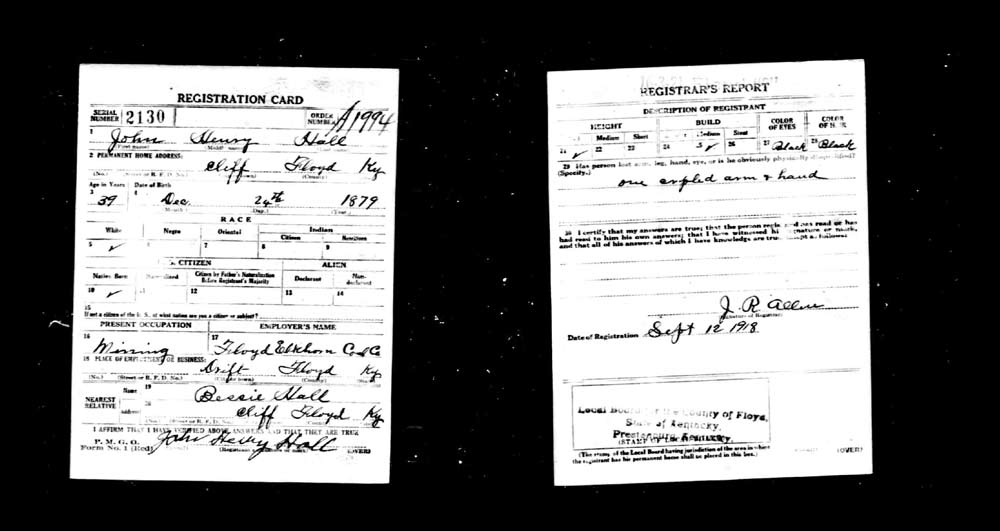 REGISTRATION CARD
SERIAL NUMBER 2130 ORDER NUMBER A1994
1 John Henry Hall
(First name) (Middle name)
2 PERMANENT HOME ADDRESS:
Cliff Floyd Ky
(No.) (Street or R. F. D. No.) (County)
Age in Years Date of Birth
3 39 4 Dec. 24th 1879
(Month.) (Day.) (Year.)
RACE
White Negro Oriental Indian
Citizen Noncitizen
5 ✓ 7 8 9
CITIZEN ALIEN
Native Born Citizen by Father's Naturalization Before Registrant's Majority Declarant Non-declarant
10 ✓ 11 12 13 14
15
If not a citizen of the U. S., of what nation are you a citizen or subject?
PRESENT OCCUPATION EMPLOYER'S NAME
16 Mining 17 Floyd Elkhorn Coal Co
18 PLACE OF EMPLOYMENT OR BUSINESS:
Drift Floyd Ky
(No.) (Street or R. F. D. No.) (City or town) (County)
NEAREST RELATIVE Name 19 Bessie Hall
Address 20 Cliff Floyd Ky
I AFFIRM THAT I HAVE VERIFIED ABOVE ANSWERS AND THAT THEY ARE TRUE
P. M. G. O.
Form No. 1 (Red) John Henry Hall (OVER)
REGISTRAR'S REPORT
DESCRIPTION OF REGISTRANT
HEIGHT BUILD COLOR OF EYES COLOR OF HAIR
Medium Short Medium Stout
21 ✓ 22 23 24 ✓ 26 27 Black 28 Black
29 Has person lost arm, leg, hand, eye, or is he obviously physically disqualified?
(Specify.) one cripled arm & hand
30 I certify that my answers are true; that the person registered has read or has
had read to him his own answers; that I have witnessed his signature or mark,
and that all of his answers of which I have knowledge are true, except as follows:
J. R. Allen
(Signature of Registrar)
Date of Registration Sept 12 1918
Local Board of the County of Floyd,
State of Kentucky,
Prestonsburg, Kentucky.
(STAMP OF LOCAL BOARD)
(The stamp of the Local Board having jurisdiction of the area in which
the registrant has his permanent home shall be placed in this box.)
(OVER)